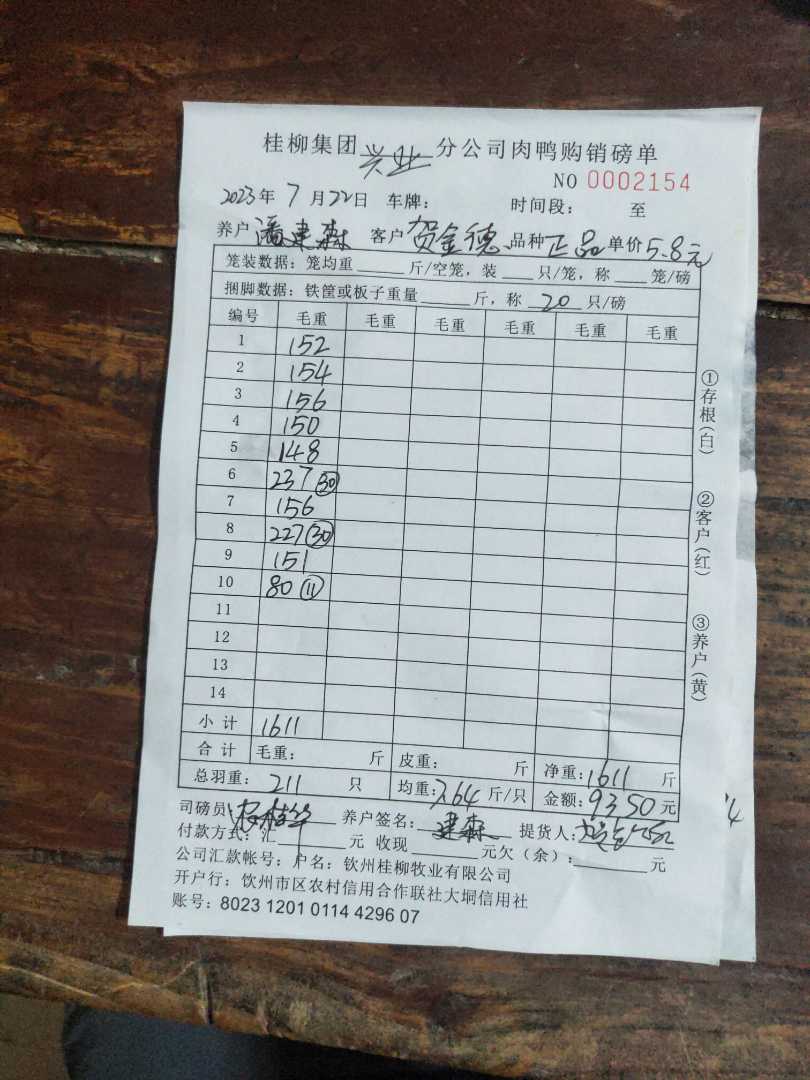 桂柳集团兴业分公司肉鸭购销磅单
NO 0002154
2023年7月22日 车牌： 时间段： 至
养户潘建森 客户贺金德 品种正品 单价5.8元
笼装数据：笼均重____斤/空笼，装___只/笼，称___笼/磅
捆脚数据：铁筐或板子重量____斤，称 20 只/磅
编号 毛重 毛重 毛重 毛重 毛重 毛重
1 152
2 154
3 156
4 150
5 148
6 237 (30)
7 156
8 227 (30)
9 151
10 80 (11)
11
12
13
14
小计 1611
合计 毛重： 斤 皮重： 斤 净重：1611 斤
总羽重：211 只 均重：7.64 斤/只 金额：9350 元
司磅员： 养户签名：建森 提货人：
付款方式：汇____元 收现____元欠（余）：____元
公司汇款帐号：户名：钦州桂柳牧业有限公司
开户行：钦州市区农村信用合作联社大垌信用社
账号：8023 1201 0114 4296 07
①存根（白）
②客户（红）
③养户（黄）